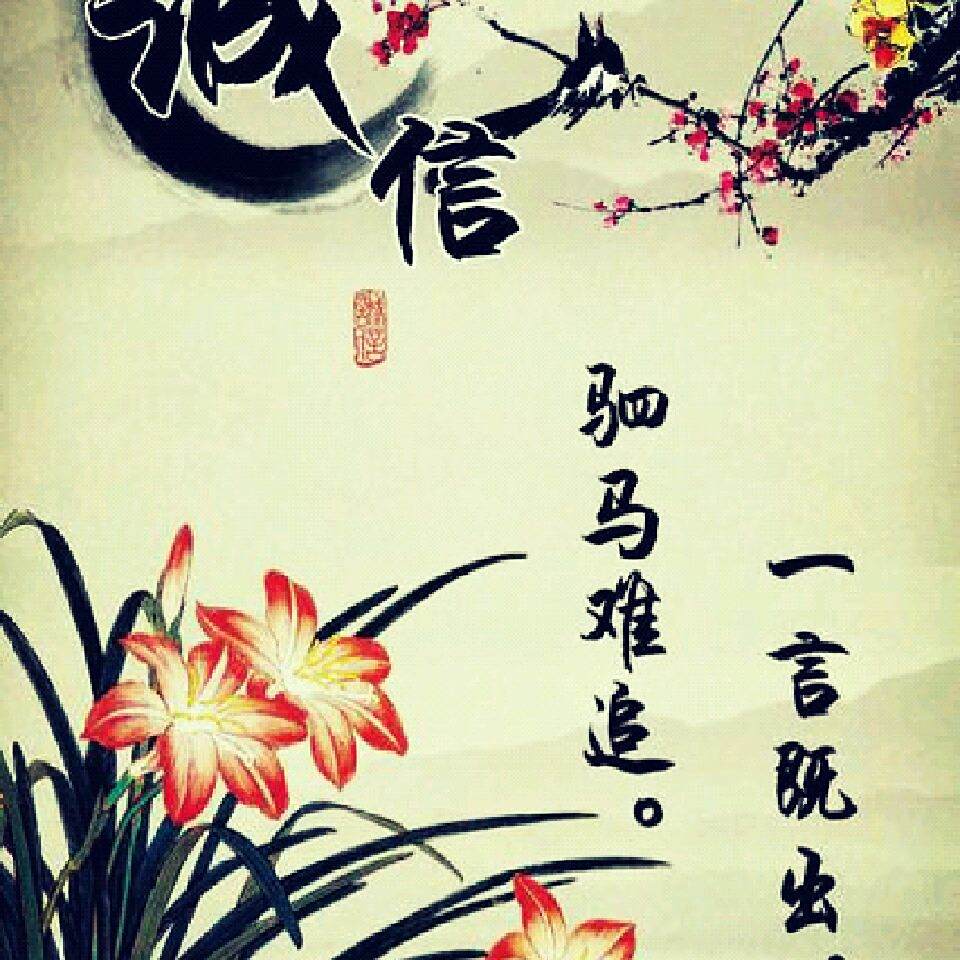 诚信
一言既出，
驷马难追。